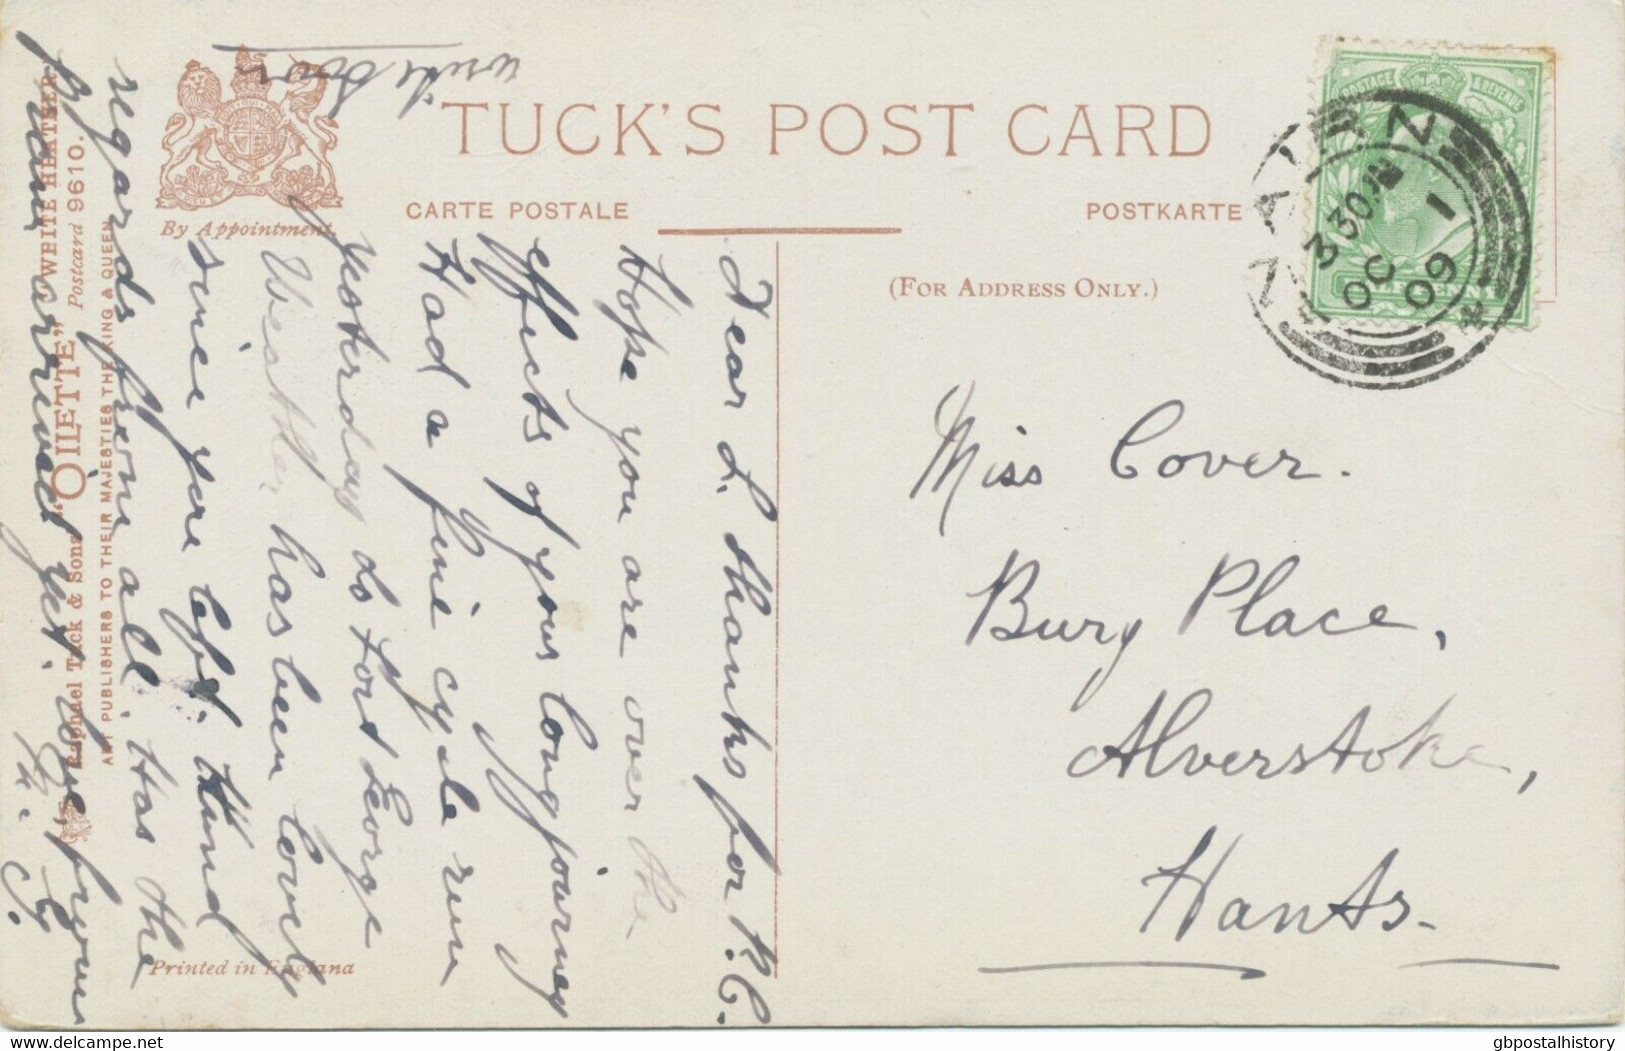 TUCK'S POST CARD
CARTE POSTALE
POSTKARTE
(For Address Only.)
By Appointment.
"WHITE HEATHER"
"OILETTE" Postcard 9610.
Raphael Tuck & Sons
ART PUBLISHERS TO THEIR MAJESTIES THE KING & QUEEN
Printed in England
POSTAGE & REVENUE
NAIRN
3 30PM
OC 1
09
Miss Cover.
Bury Place,
Alverstoke,
Hants.
Dear L. thanks for P.C.
Hope you are over the
effects of your long journey
Had a fine cycle run
yesterday to Fort George
Weather has been lovely
since you left. Kind
regards from all. Has the
arrived yet. Love from
write soon
gbpostalhistory
delcampe.net